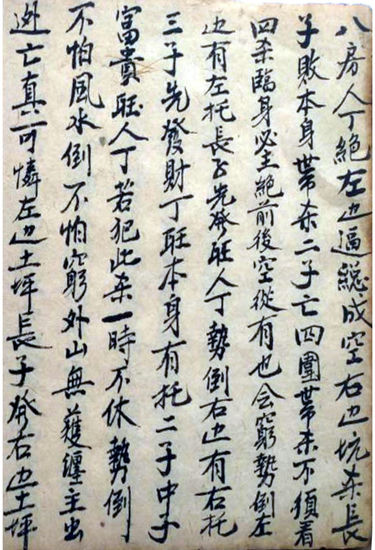 八房人丁絶左边逼總成空右边坑杀長
子敗本身帶杀二子亡四圍帶杀不須看
四杀臨身必主絶前後空從有也会窮勢倒左
边有左托長子先發旺人丁勢倒右边有右托
三子先發財丁旺本身有托二子中子
富貴旺人丁若犯此杀一時不休勢倒
不怕風水倒不怕窮外山無護纏主出
逃亡真可憐左边土坪長子發右边土坪